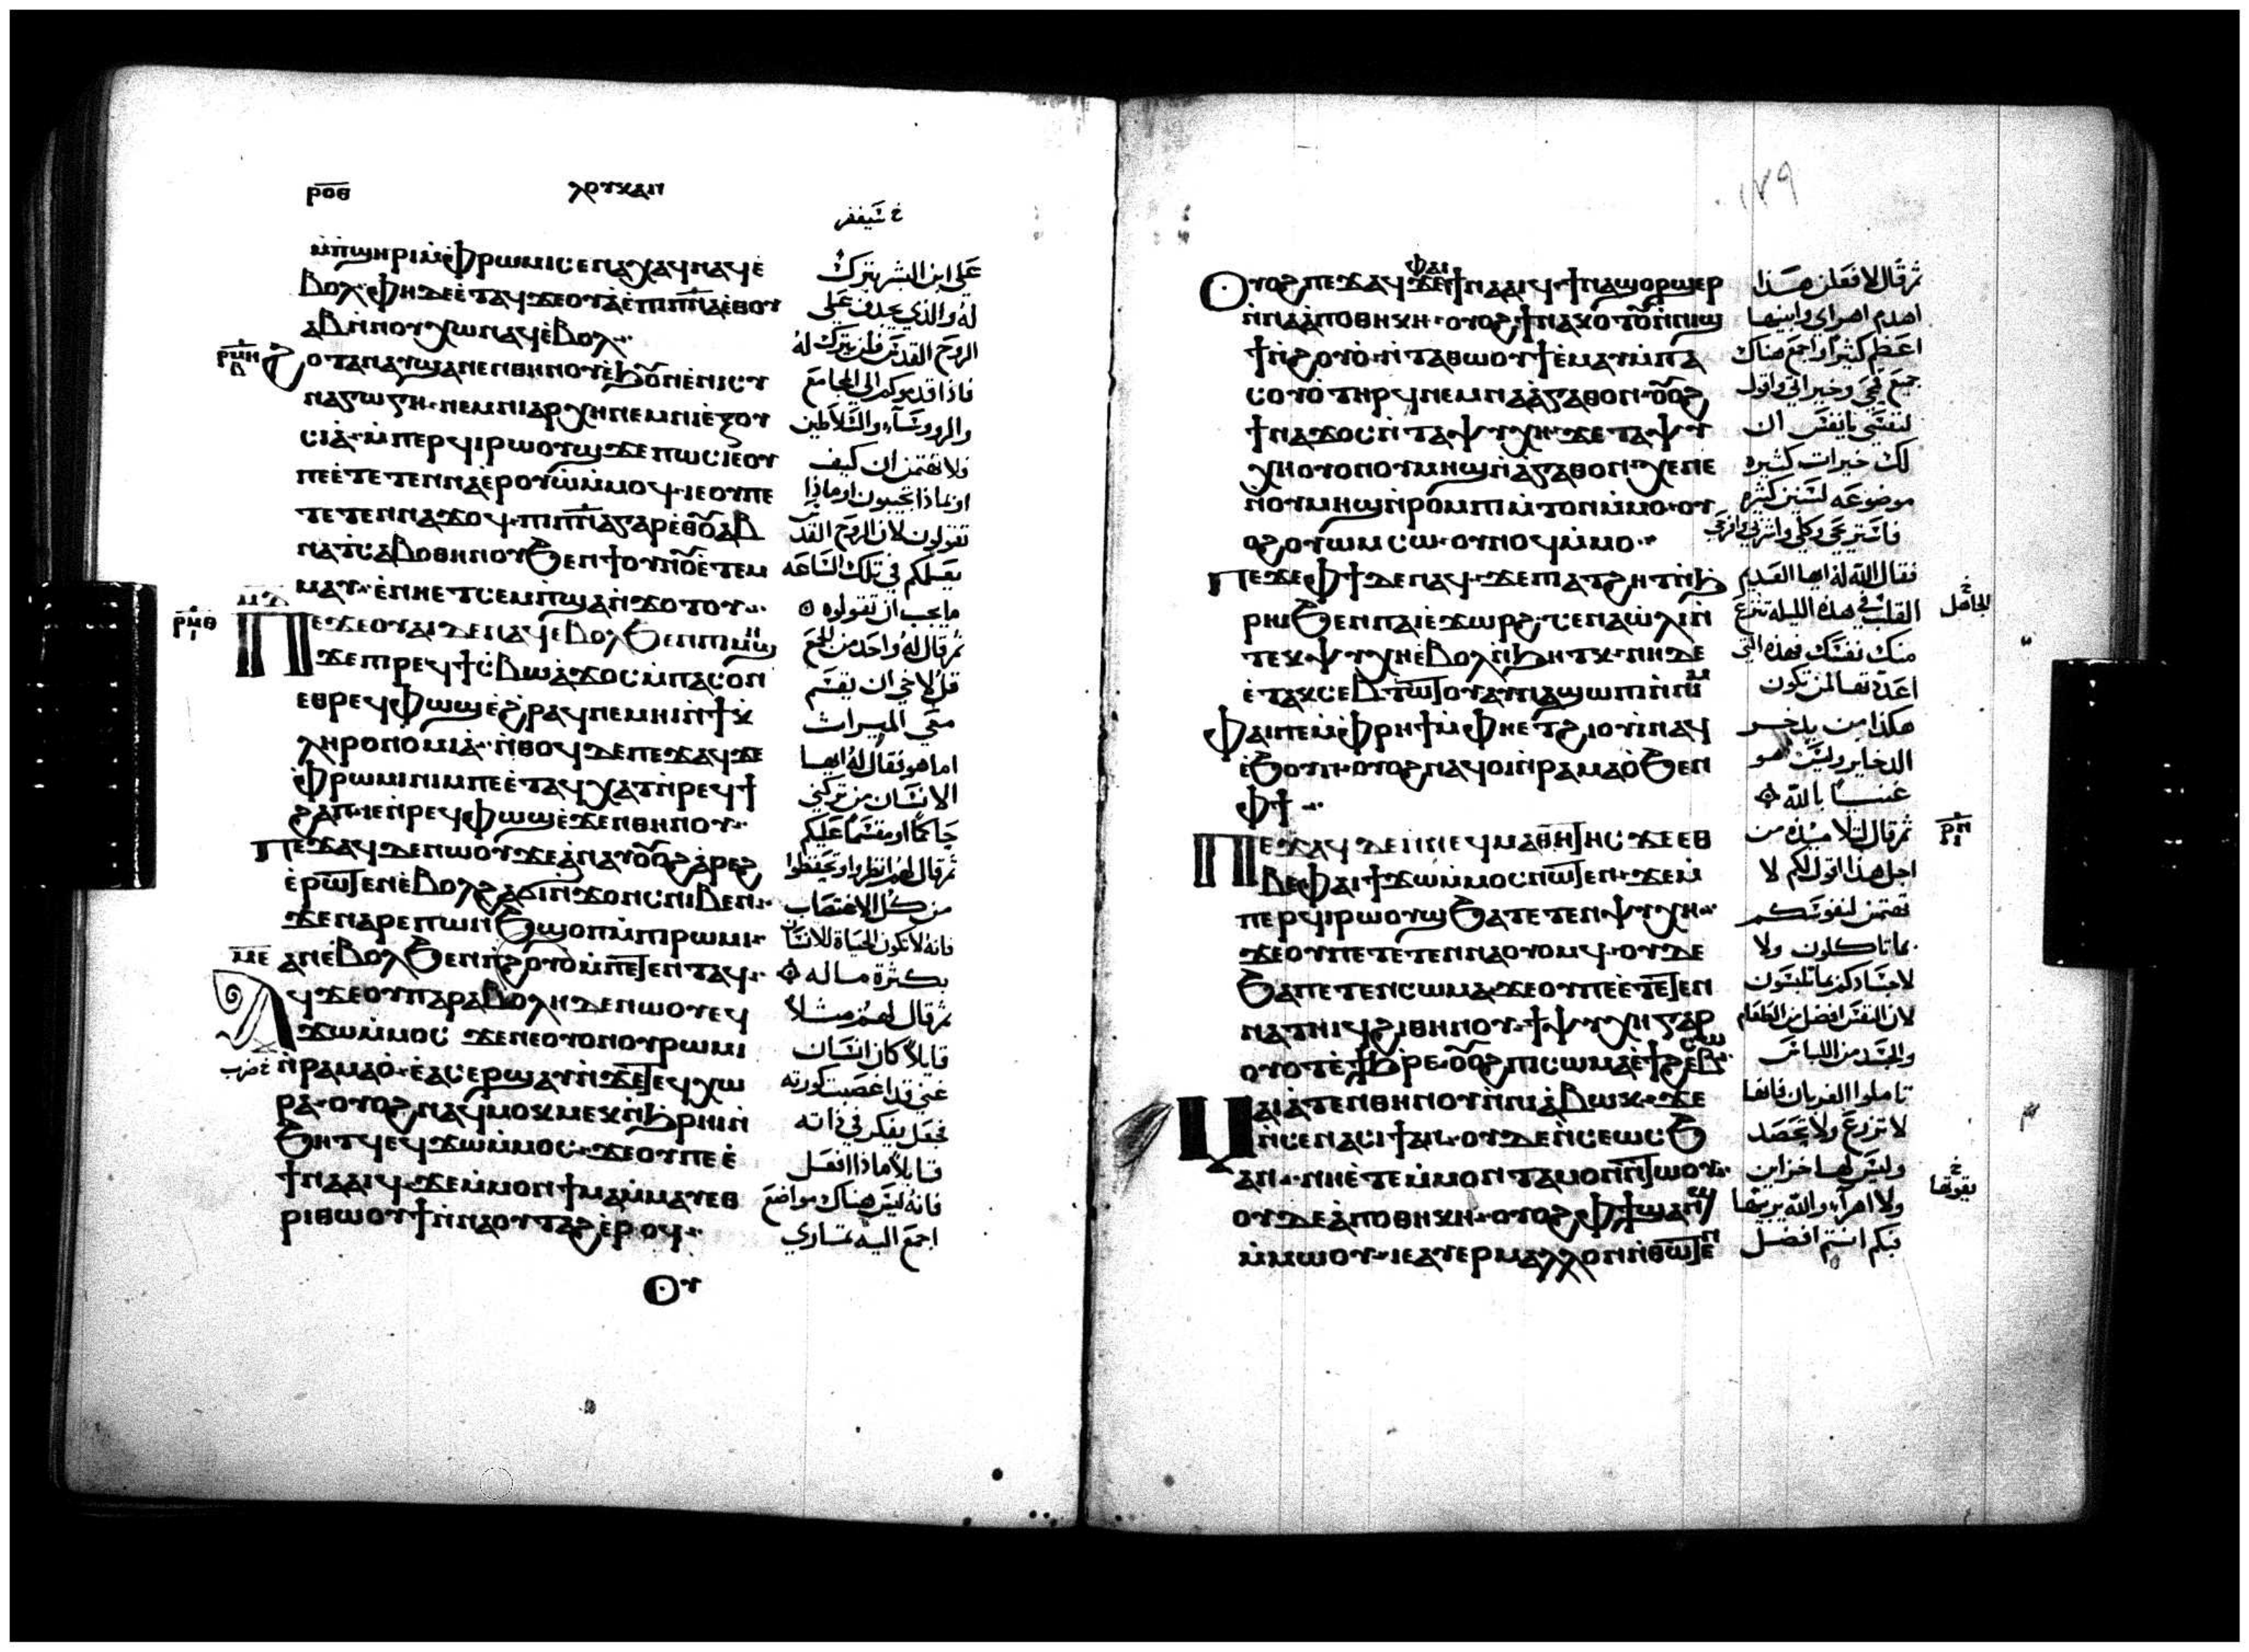 ⲣⲟⲑ
ⲗⲟⲩⲕⲁⲛ
ⲙ̀ⲡϣⲏⲣⲓⲙ̀ⲫⲣⲱⲙⲓⲥⲉⲛⲁⲭⲁϥⲛⲁϥⲉ̀
ⲃⲟⲗ·ⲫⲏⲇⲉⲉ̀ⲧⲁϥϫⲉⲟⲩⲁⲉ̀ⲡⲓⲡ̅ⲛ̅ⲁ̅ⲉⲑⲟⲩ
ⲁⲃⲛ̀ⲛⲟⲩⲭⲱⲛⲁϥⲉ̀ⲃⲟⲗ
ⲣⲙⲏ
ϩⲟⲧⲁⲛⲁⲩϣⲁⲛⲉⲛⲑⲏⲛⲟⲩⲉ̀ϧⲟ̅ⲛⲉ̀ⲛⲓⲥⲩ
ⲛⲁⲅⲱⲅⲏ·ⲛⲉⲙⲛⲓⲁⲣⲭⲏⲛⲉⲙⲛⲓⲉ̀ⲝⲟⲩ
ⲥⲓⲁ̀·ⲙ̀ⲡⲉⲣϥⲓⲣⲱⲟⲩϣϫⲉⲡⲱⲥⲓⲉⲟⲩ
ⲡⲉⲉ̀ⲧⲉⲧⲉⲛⲛⲁⲉ̀ⲣⲟⲩⲱ̀ⲙ̀ⲙⲟϥ·ⲓⲉⲟⲩⲡⲉ
ⲧⲉⲧⲉⲛⲛⲁϫⲟϥ·ⲡⲓⲡ̅ⲛ̅ⲁ̅ⲅⲁⲣⲉ̀ⲑⲟ̅ⲁⲃ
ⲛⲁⲧ̀ⲥⲁⲃⲟⲑⲏⲛⲟⲩϧⲉⲛϯⲟⲩⲛⲟ̅ⲉ̀ⲧⲉⲙ
ⲙⲁⲩ·ⲉ̀ⲛⲏⲉⲧⲥⲉⲙ̀ⲡϣⲁⲛ̀ϫⲟⲧⲟⲩ
ⲙⲇ
ⲣⲙⲑ
ⲡⲉϫⲉⲟⲩⲁⲓⲇⲉⲛⲁϥⲉ̀ⲃⲟⲗϧⲉⲛⲡⲓⲙⲏϣ
ϫⲉⲡⲣⲉϥϯⲥ̀ⲃⲱⲁ̀ϫⲟⲥⲙ̀ⲡⲁⲥⲟⲛ
ⲉⲑⲣⲉϥⲫⲱϣⲉ̀ϩⲣⲁϥⲛⲉⲙⲏⲓⲛ̀ϯⲕ̀
ⲗⲏⲣⲟⲛⲟⲙⲓⲁ̀·ⲛ̀ⲑⲟϥⲇⲉⲡⲉϫⲁϥϫⲉ
ⲫ̀ⲣⲱⲙⲓⲛⲓⲙⲡⲉⲉ̀ⲧⲁϥⲭⲁⲧⲛ̀ⲣⲉϥϯ
ϩⲁⲡ·ⲓⲉⲛ̀ⲣⲉϥⲫⲱϣⲉ̀ϫⲉⲛⲑⲏⲛⲟⲩ
ⲡⲉϫⲁϥⲇⲉⲛⲱⲟⲩϫⲉⲁ̀ⲛⲁⲩⲟ̅ⲟϩⲁ̀ⲣⲉϩ
ⲉ̀ⲣⲱⲧⲉⲛⲉ̀ⲃⲟⲗϩⲁϭⲓⲛ̀ϫⲟⲛⲥⲛⲓⲃⲉⲛ
ϫⲉⲛⲁⲣⲉⲡⲱⲛϧϣⲟⲡⲙ̀ⲡⲓⲣⲱⲙⲓ
ⲁⲛⲉ̀ⲃⲟⲗϧⲉⲛⲡ̀ϩⲟⲩⲟ̀ⲙ̀ⲡⲉⲧⲉⲛⲧⲁϥ
ⲙⲉ
ⲁϥϫⲉⲟⲩⲡⲁⲣⲁⲃⲟⲗⲏⲇⲉⲛⲱⲟⲩⲉϥ
ϫⲱⲙ̀ⲙⲟⲥ ϫⲉⲛⲉⲟⲩⲟⲛⲟⲩⲣⲱⲙⲓ
ⲛ̀ⲣⲁⲙⲁⲟ̀·ⲉ̀ⲁⲥⲉⲣϣⲁⲩⲛ̀ϫⲉⲧⲉϥⲭⲱ
ⲣⲁ·ⲟⲩⲟϩⲛⲁϥⲙⲟⲕⲙⲉⲕⲛ̀ϧⲣⲏⲓⲛ̀
ϧⲏⲧϥⲉϥϫⲱⲙ̀ⲙⲟⲥ·ϫⲉⲟⲩⲡⲉⲉ̀
ϯⲛⲁⲁⲓϥ·ϫⲉⲙ̀ⲙⲟⲛϯⲙⲁⲙ̀ⲙⲁⲩⲉⲑ
ⲣⲓⲑⲱⲟⲩϯⲛ̀ⲛⲁⲟⲩⲧⲁϩⲉ̀ⲣⲟϥ
ⲟⲩ
على ابن البشر يترك
له والذي يجدف على
الروح القدس فلن يترك له
فاذا قدموكم الى المجامع
والروسآء والسلاطين
فلا تهتموا كيف
او بماذا تجيبون او ماذا
تقولون لان الروح القدس
يعلمكم في تلك الساعه
ما يجب ان تقولوه
ثم قال له واحد من الجمع
قل لاخي ان يقسم
معي الميراث
اما هو فقال له ايها
الانسان من تركني
حاكمًا او مقسمًا عليكم
ثم قال لهم انظروا وتحفظوا
من كل الاغتصاب
فانه لا تكون الحياة للانسان
بكثرة ماله
ثم قال لهم مثلاً
قايلاً كان انسان
غني قد اخصبت كورته
فجعل يفكر في ذاته
قايلاً ماذا افعل
فانه ليس هناك مواضع
اجمع اليه ثماري
١٧٩
ⲟⲩⲟϩⲡⲉϫⲁϥϫⲉⲫⲁⲓϯⲛⲁⲁⲓϥ·ϯⲛⲁϣⲟⲣϣⲉⲣ
ⲛ̀ⲛⲁⲁ̀ⲡⲟⲑⲏⲕⲏ·ⲟⲩⲟϩϯⲛⲁⲕⲟⲧⲟ̅ⲛ̀ⲛⲓϣ
ϯⲛ̀ϩⲟⲩⲟ̀·ⲛ̀ⲧⲁⲑⲱⲟⲩϯⲉ̀ⲙⲁⲩⲙ̀ⲡⲁ
ⲥⲟⲩⲟ̀ⲧⲏⲣϥⲛⲉⲙⲛⲁⲁ̀ⲅⲁⲑⲟⲛ·ⲟ̅ⲟϩ
ϯⲛⲁϫⲟⲥⲛ̀ⲧⲁⲯⲩⲭⲏ·ϫⲉⲧⲁⲯⲩ
ⲭⲏⲟⲩⲟⲛⲟⲩⲙⲏϣⲛ̀ⲁ̀ⲅⲁⲑⲟⲛⲭⲉⲛⲉ
ⲛ̀ⲟⲩⲙⲏϣⲛ̀ⲣⲟⲙⲡⲓⲙ̀ⲧⲟⲛⲙ̀ⲙⲟ·ⲟⲩ
ⲟϩⲟⲩⲱⲙⲥⲱ·ⲟⲩⲛⲟϥⲙ̀ⲙⲟ
ⲡⲉϫⲉⲫϯⲇⲉⲛⲁϥ·ϫⲉⲡⲓⲁⲧϩⲏⲧⲛ̀ϧ
ⲣⲏⲓϧⲉⲛⲡⲁⲓⲉ̀ϫⲱⲣϩ·ⲥⲉⲛⲁⲱ̀ⲗⲓⲛ̀
ⲧⲉⲕⲯⲩⲭⲏⲉ̀ⲃⲟⲗⲛ̀ϧⲏⲧⲕ·ⲛⲏⲇⲉ
ⲉ̀ⲧⲁⲕⲥⲉⲃⲧⲱⲧⲟⲩⲁⲩⲛⲁϣⲱⲡⲓⲛ̀ⲛⲓⲙ
ⲫⲁⲓⲡⲉⲙ̀ⲫⲣⲏϯⲙ̀ⲫⲏⲉⲧϩⲓⲟⲩⲓ̀ⲛⲁϥ
ⲉ̀ϧⲟⲩⲛ·ⲟⲩⲟϩⲛⲁϥⲟⲓⲛ̀ⲣⲁⲙⲁⲟ̀ϧⲉⲛ
ⲫϯ
ⲡⲉϫⲁϥⲇⲉⲛ̀ⲛⲉϥⲙⲁⲑⲏⲧⲏⲥ ϫⲉⲉⲑ
ⲃⲉⲫⲁⲓϯϫⲱⲙ̀ⲙⲟⲥⲛⲱⲧⲉⲛ·ϫⲉⲙ̀
ⲡⲉⲣϥⲓⲣⲱⲟⲩϣϧⲁⲧⲉⲧⲉⲛⲯⲩⲭⲏ
ϫⲉⲟⲩⲡⲉⲧⲉⲧⲉⲛⲛⲁⲟⲩⲟⲙϥ·ⲟⲩⲇⲉ
ϧⲁⲡⲉⲧⲉⲛⲥⲱⲙⲁ·ϫⲉⲟⲩⲡⲉⲉ̀ⲧⲉⲧⲉⲛ
ⲛⲁⲧⲏⲓϥϩⲓⲑⲏⲛⲟⲩ·ϯⲯⲩⲭⲏⲅⲁⲣ
ⲟⲩⲟⲧⲉ̀ϯϧⲣⲉ·ⲟ̅ⲟϩⲡⲓⲥⲱⲙⲁⲉ̀ϯϩⲉⲃⲥⲱ
ⲙⲁⲓⲁⲧⲉⲛⲑⲏⲛⲟⲩⲛ̀ⲛⲓⲁ̀ⲃⲱⲕ·ϫⲉ
ⲛ̀ⲥⲉⲛⲁⲥⲓϯⲁⲛ·ⲟⲩⲇⲉⲛ̀ⲥⲉⲱⲥϧ
ⲁⲛ·ⲛⲏⲉ̀ⲧⲉⲙ̀ⲙⲟⲛⲧⲁⲙⲟⲛⲛ̀ⲧⲱⲟⲩ
ⲟⲩⲇⲉⲁ̀ⲡⲟⲑⲏⲕⲏ·ⲟⲩⲟϩⲫϯϣⲁⲛϣ
ⲙ̀ⲙⲱⲟⲩ·ⲓⲉⲁⲩⲉⲣⲙⲁⲗⲗⲟⲛⲛ̀ⲑⲱⲧⲉⲛ
ⲣⲛ
ثم قال لافعلن هذا
اهدم اهراي وابنيها
اعظم كثيرًا واجمع هناك
جميع قمحي وخيراتي واقول
لنفسي يا نفس ان
لك خيرات كثيره
موضوعه لسنين كثيره
فاستريحي وكلي واشربي وافرحي
فقال الله له ايها العديم
القلب في هذه الليله تنزع
الجاهل
منك نفسك فهذه التي
اعددتها لمن تكون
هكذا من يدخر
الدخاير وليس هو
غنيا بالله
ثم قال لتلاميذه من
اجل هذا اقول لكم لا
تهتموا لنفوسكم
بما تاكلون ولا
لاجسادكم بما تلبسون
لان النفس افضل من الطعام
والجسد من اللباس
تاملوا الغربان فانها
لا تزرع ولا تحصد
وليس لها خزاين
ولا اهرآء والله يربيها
يقوتها
فبكم انتم افضل